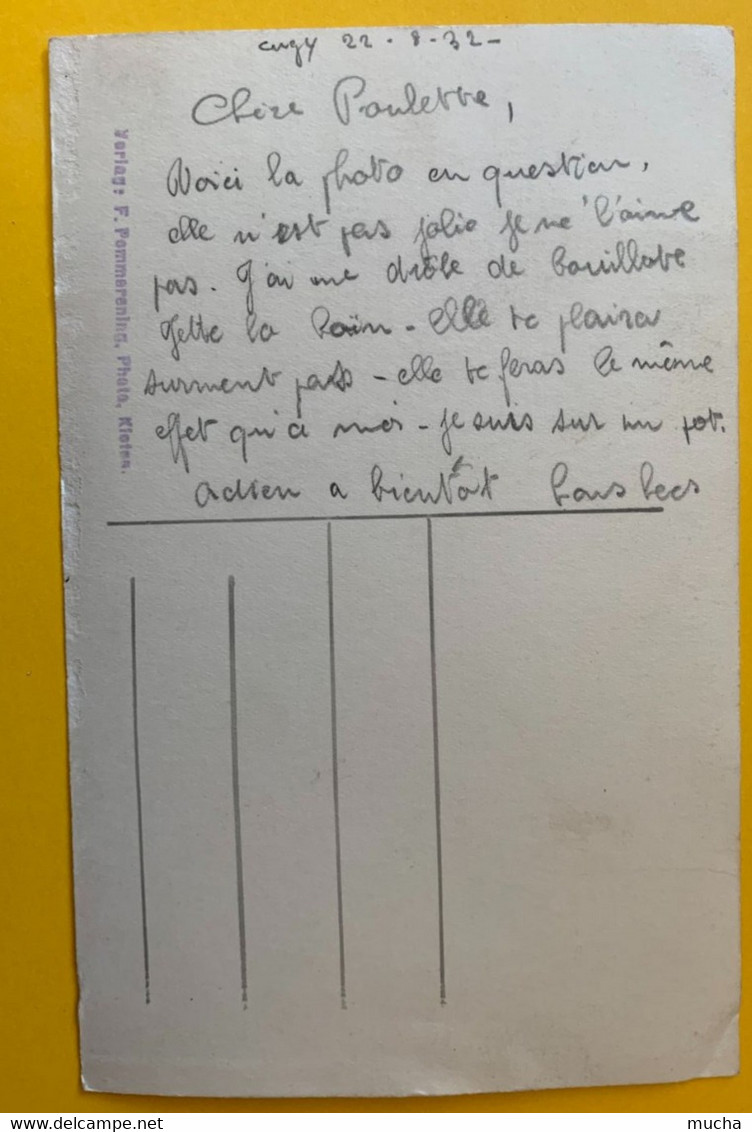 cugy 22-8-32-
Chère Paulette,
Voici la photo en question,
elle n'est pas jolie je ne l'aime
pas. J'ai une drôle de bouillote
Jette la loin - Elle te plaira
surment pas - elle te feras le même
effet qu'à moi - je suis sur un pot.
adieu a bientôt
Verlag: F. Pommerening, Photo, Kloten.
mucha